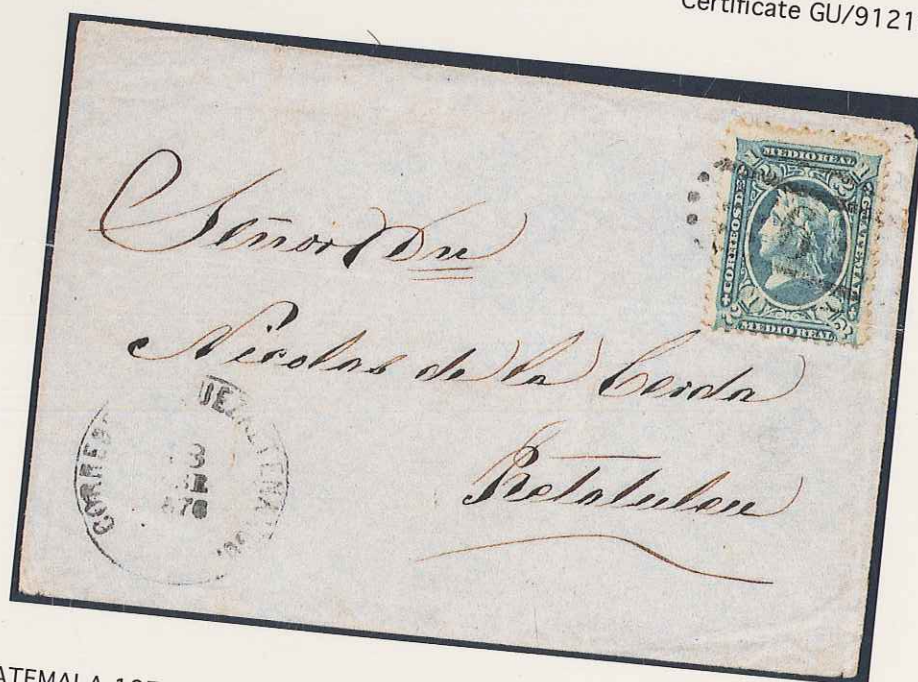 Certificate GU/9121
MEDIO REAL
CORREOS DE
MEDIO REAL
Señor Dn
Nicolas de la Cerda
Retaluleu
CORREOS